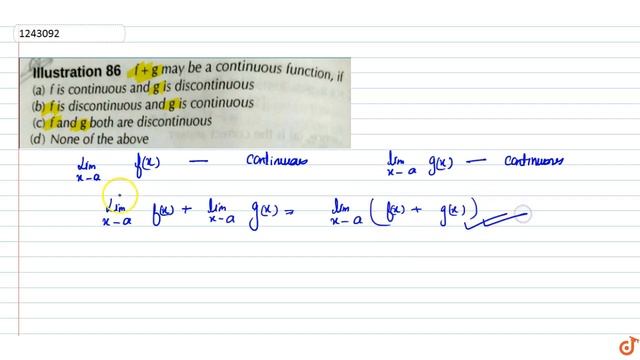 1243092
Illustration 86 f + g may be a continuous function, if
(a) f is continuous and g is discontinuous
(b) f is discontinuous and g is continuous
(c) f and g both are discontinuous
(d) None of the above
lim x–a f(x) — continuous lim x–a g(x) — continuous
lim x–a f(x) + lim x–a g(x) = lim x–a ( f(x) + g(x) )